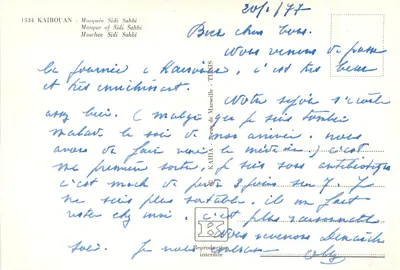 1534 KAIROUAN - Mosquée Sidi Sahbi
Mosque of Sidi Sahbi
Moschee Sidi Sahbi
20/1/77
Bien chers tous.
Nous venons de passer
la journée à Kairouan, c'est très beau
et très enrichissant.
Notre séjour s'écoule
assez bien. (malgré que je suis tombé
malade le soir de mon arrivée. nous
avons dû faire venir le médecin.) c'est
ma première sortie. Je suis sous antibiotiques
c'est moche de perdre 3 jours sur 7. Je
ne suis plus sortable. il me faut
rester chez moi, c'est plus raisonnable
Nous revenons Dimanche
soir. Je vous embrasse
KAHIA - Rue de Marseille - TUNIS
Reproduction
interdite